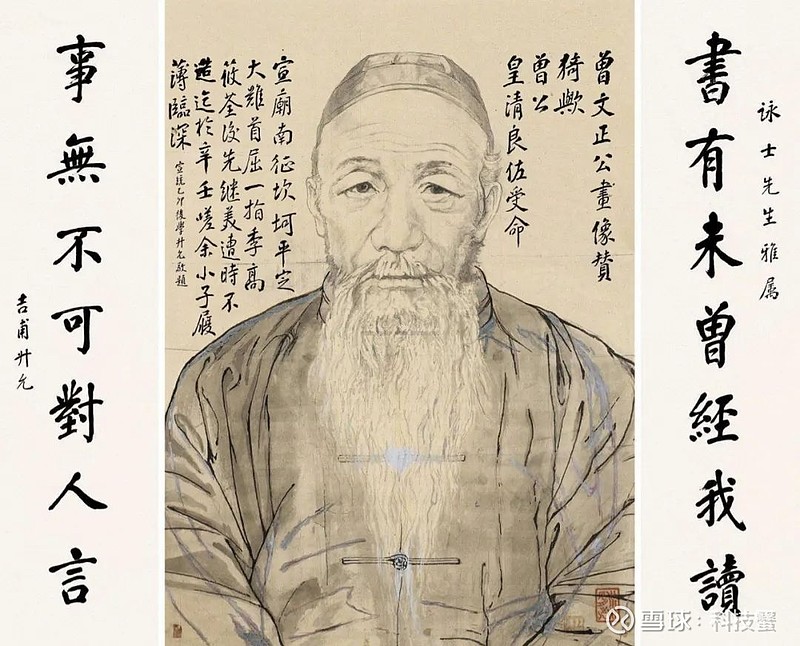 詠士先生雅属
書有未曾經我讀
曾文正公畫像贊
猗歟
曾公
皇清良佐受命
宣廟南征坎坷平定
大難首屈一指季高
筱荃後先繼美遭時不
造迄於辛壬嗟余小子履
薄臨深
宣統乙卯後學升允敬題
事無不可對人言
吉甫升允
雪球：科技蟹